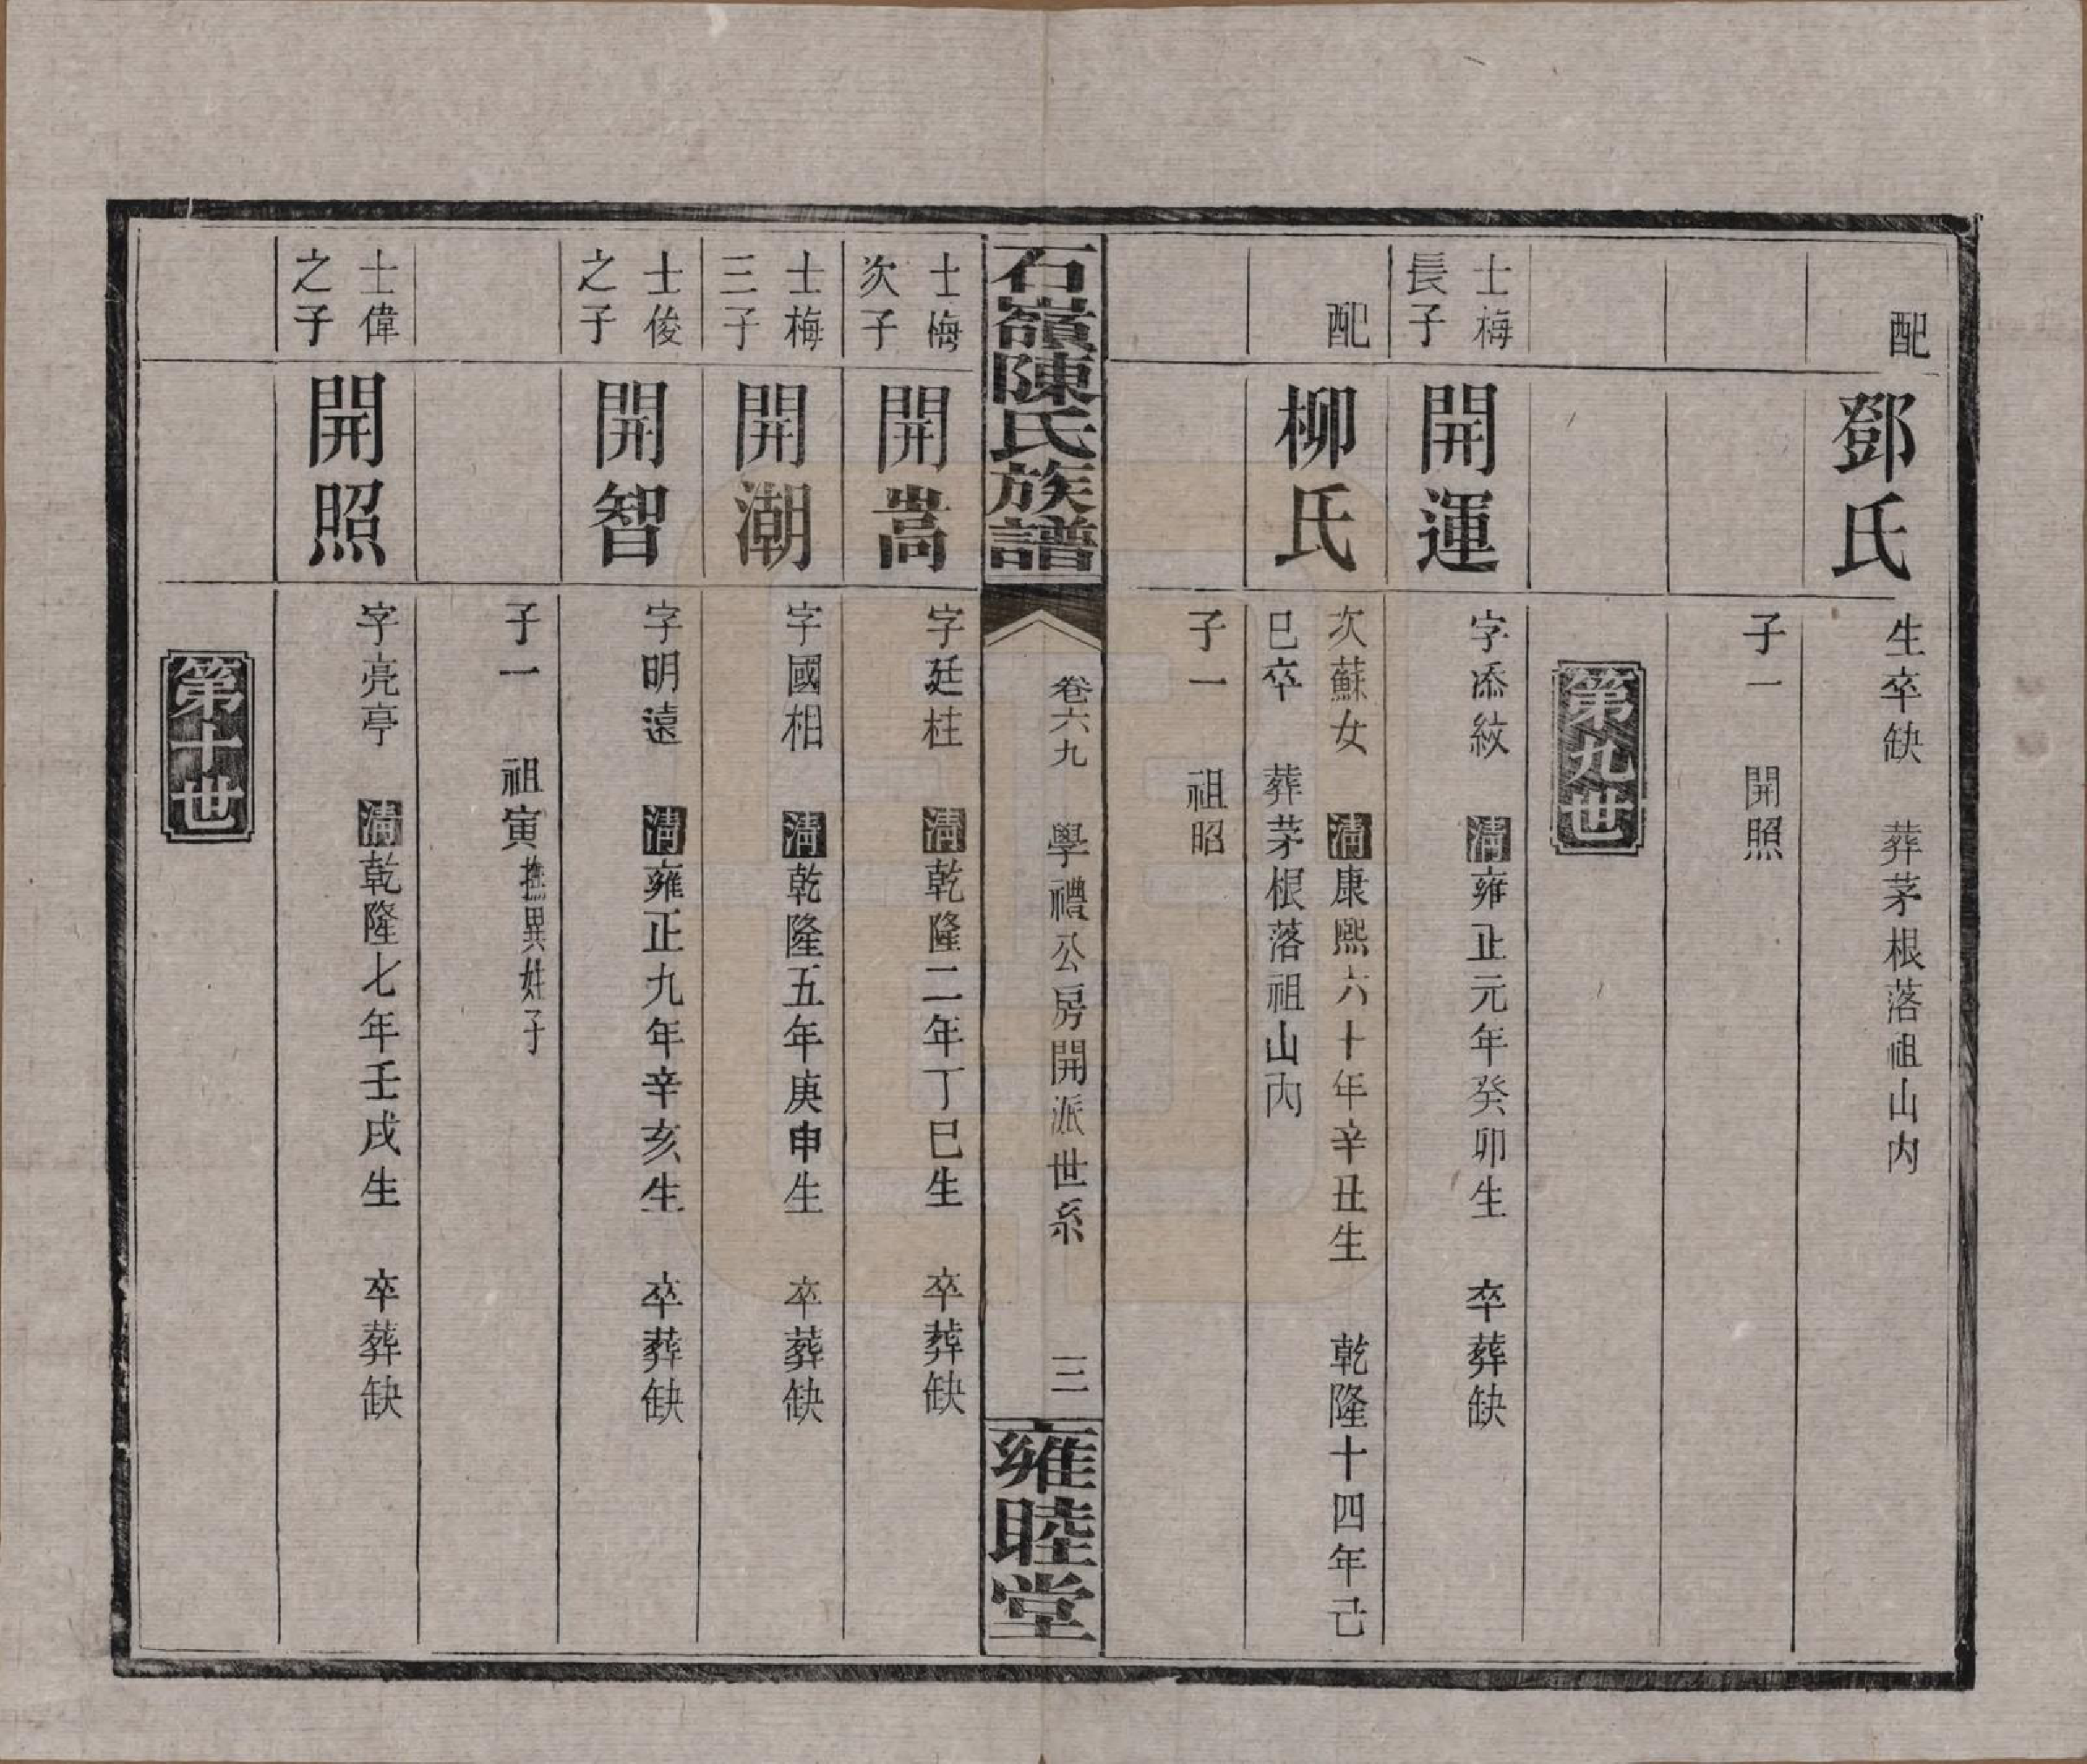 配
鄧氏
生卒缺　葬茅根落祖山内
子一　開照
第九世
士梅
長子
開運
字添紋　清雍正元年癸卯生　卒葬缺
配
柳氏
次蘇女　清康熙六十年辛丑生　乾隆十四年己
巳卒　葬茅根落祖山内
子一　祖昭
石嶺陳氏族譜
卷六九　學禮公房開派世系　三
雍睦堂
士梅
次子
開嵩
字廷柱　清乾隆二年丁巳生　卒葬缺
士梅
三子
開潮
字國相　清乾隆五年庚申生　卒葬缺
士俊
之子
開智
字明遠　清雍正九年辛亥生　卒葬缺
子一　祖寅撫異姓子
士偉
之子
開照
字亮亭　清乾隆七年壬戌生　卒葬缺
第十世